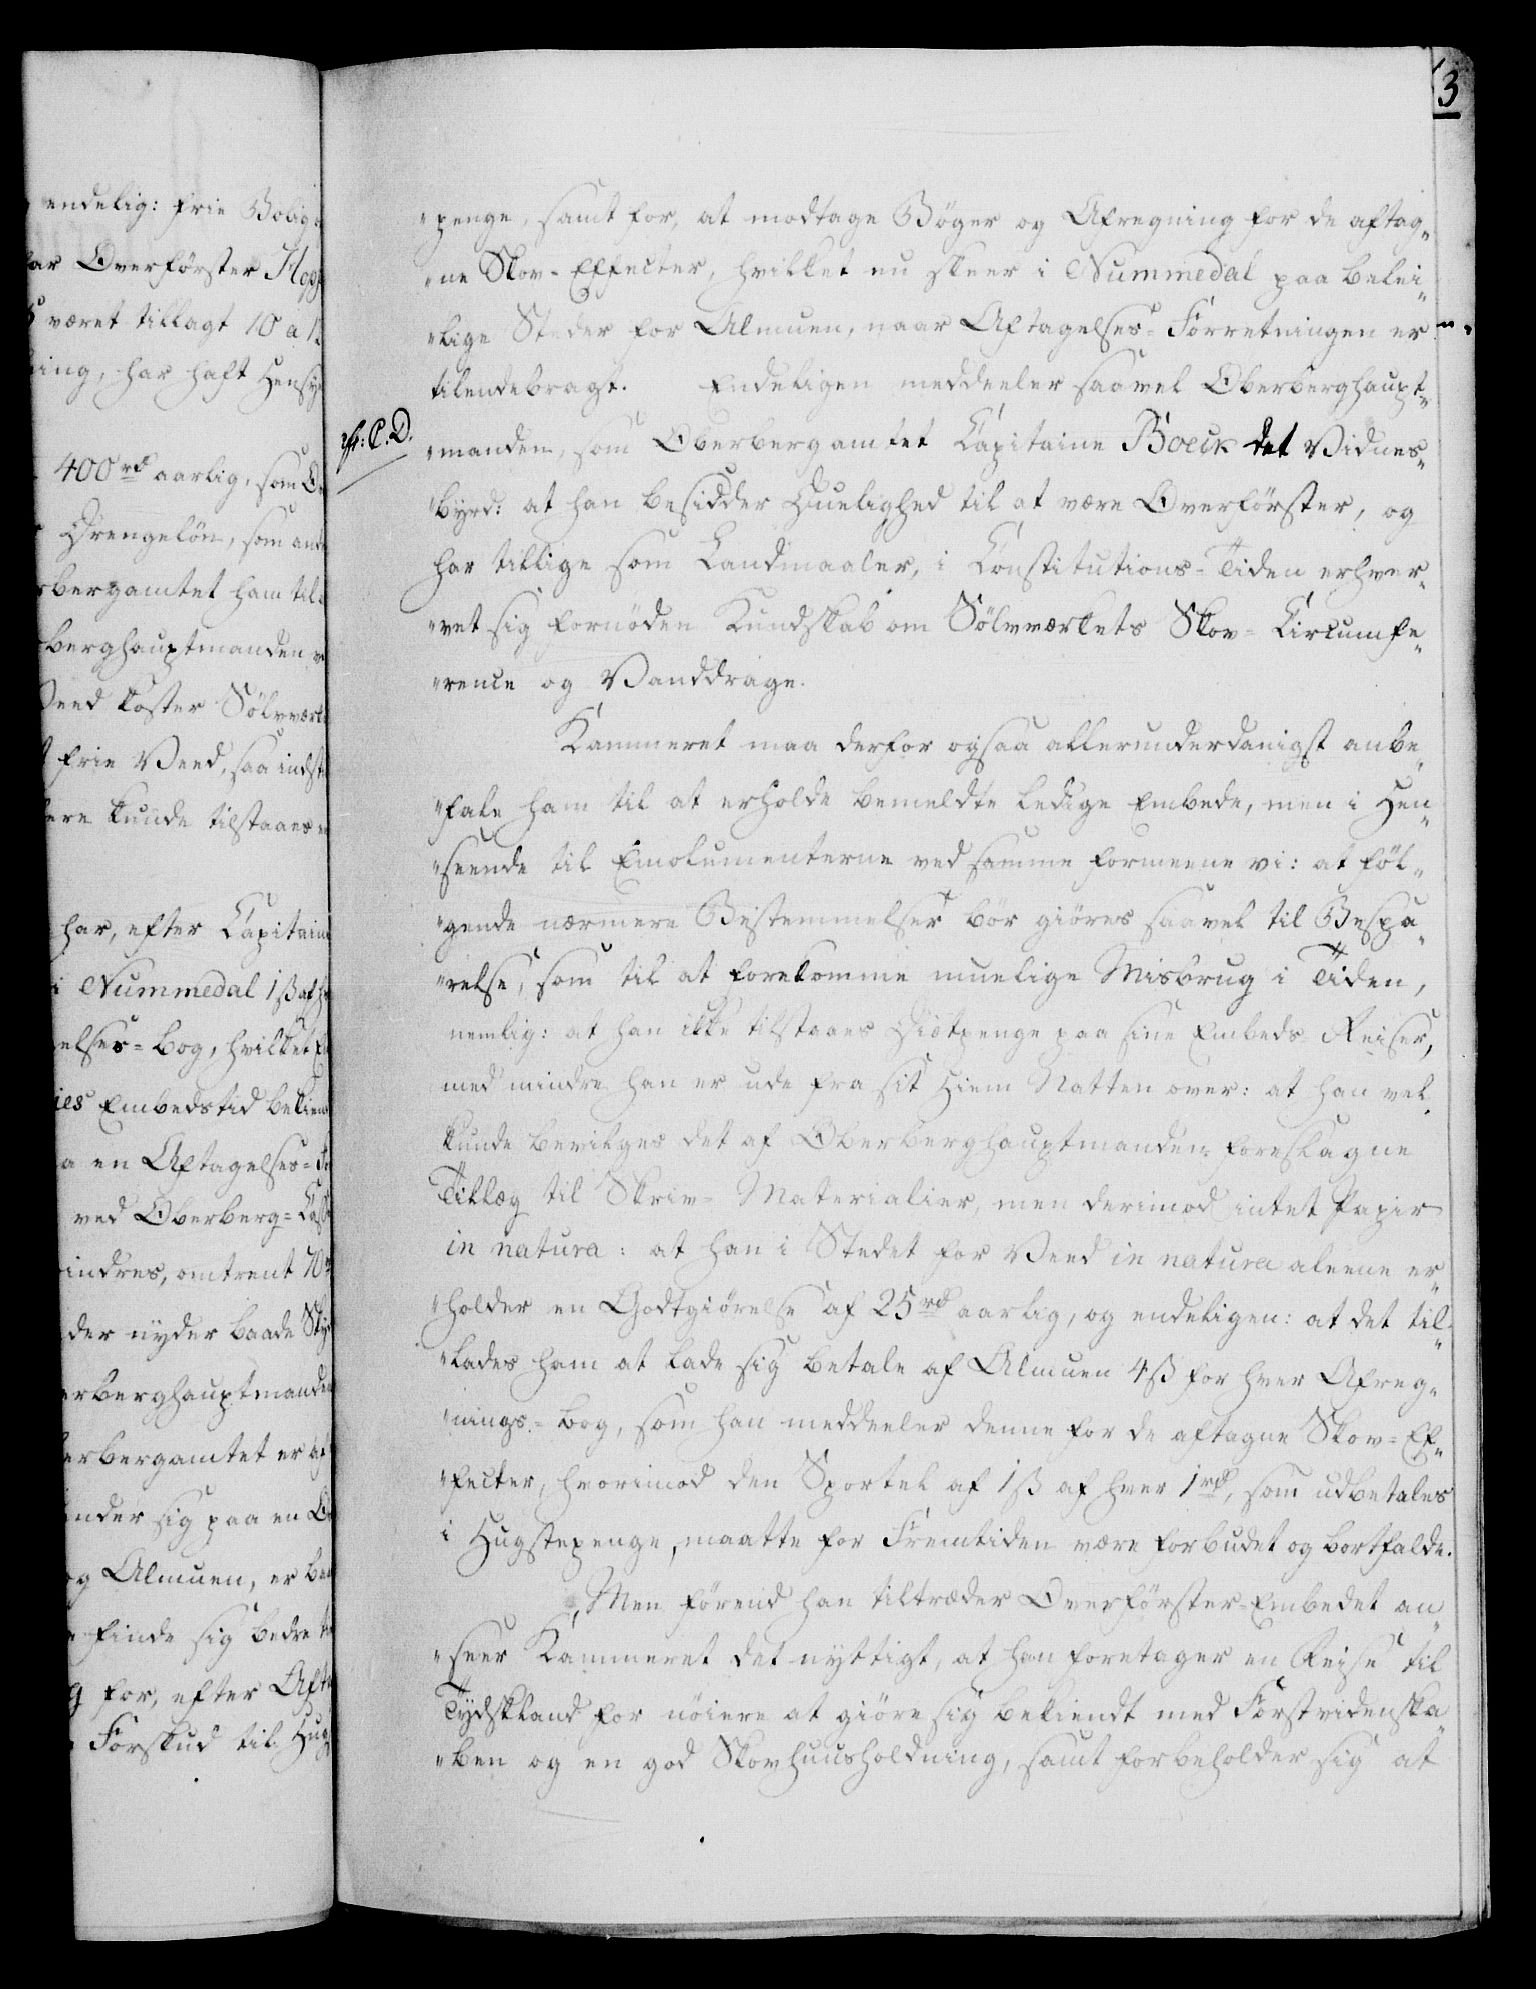 3
endelig: frie Bolig
har Overförster
været tillagt 10 a 12
ning, har haft Hensyn
400 rd aarlig, som
Drengelön, som
rbergamtet ham til
berghauptmanden
Veed koster Sölvværk
frie Veed, saa indst
ere kunde tilstaaes
har, efter Capitain
i Nummedal 1 ß af
elses=bog, hvilket
ies Embedstid bekien
a en Aftagelses=
ved Oberberg=
indres, omtrent 70
der nyder baade
erberghauptmanden
erbergamtet er
under sig paa en
og Almuen, er
finde sig bedre
for, efter
Forskud til Hug
"penge, samt for, at modtage Böger og Afregning for de aftag"
"ne Skov-Effecter, hvilket nu skeer i Nummedal paa belei"
"lige Steder for Almuen, naar Aftagelses=Forretningen er
tilendebragt. Endeligen meddeeler saavel Oberberghaupt"
cfr: C. D.
"manden, som Oberbergamtet Capitaine Boeck det Vidnes"
"byrd: at han besidder Duelighed til at være Overförster, og
har tillige som Landmaaler, i Constitutions=Tiden erhver"
"vet sig fornöden Kundskab om Sölvværkets Skov=Circumfe"
"rence og Vanddrage.
Kammeret maa derfor ogsaa allerunderdanigst anbe"
"fale ham til at erholde bemeldte ledige Embede, men i Hen"
"seende til Emolumenterne ved samme formeene vi: at föl"
"gende nærmere Bestemmelser bör giöres saavel til Bespa"
"relse, som til at forekomme muelige Misbrug i Tiden,
nemlig: at han ikke tilstaaes Diötpenge paa sine Embeds=Reiser,
med mindre han er ude fra sit Hiem Natten over: at han vel
kunde bevilges det af Oberberghauptmanden foreslagne
Tillæg til Skriv=Materialier, men derimod intet Papir
in natura: at han i Stedet for Veed in natura aleene er"
"holder en Godtgiörelse af 25 rd aarlig, og endeligen: at det til"
"lades ham at lade sig betale af Almuen 4 ß for hver Afreg"
"nings=bog, som han meddeeler denne for de aftagne Skov=Ef"
"fecter, hvorimod den Sportel af 1 ß af hver 1 rd, som udbetales
i Hugstepenge, maatte for Fremtiden være forbudet og bortfalde.
Men förend han tiltræder Overförster=Embedet an"
"seer Kammeret det nyttigt, at han foretager en Reise til
Tydskland for nöiere at giöre sig bekiendt med Forstvidenska"
"ben og en god Skovhuusholdning, samt forbeholder sig at